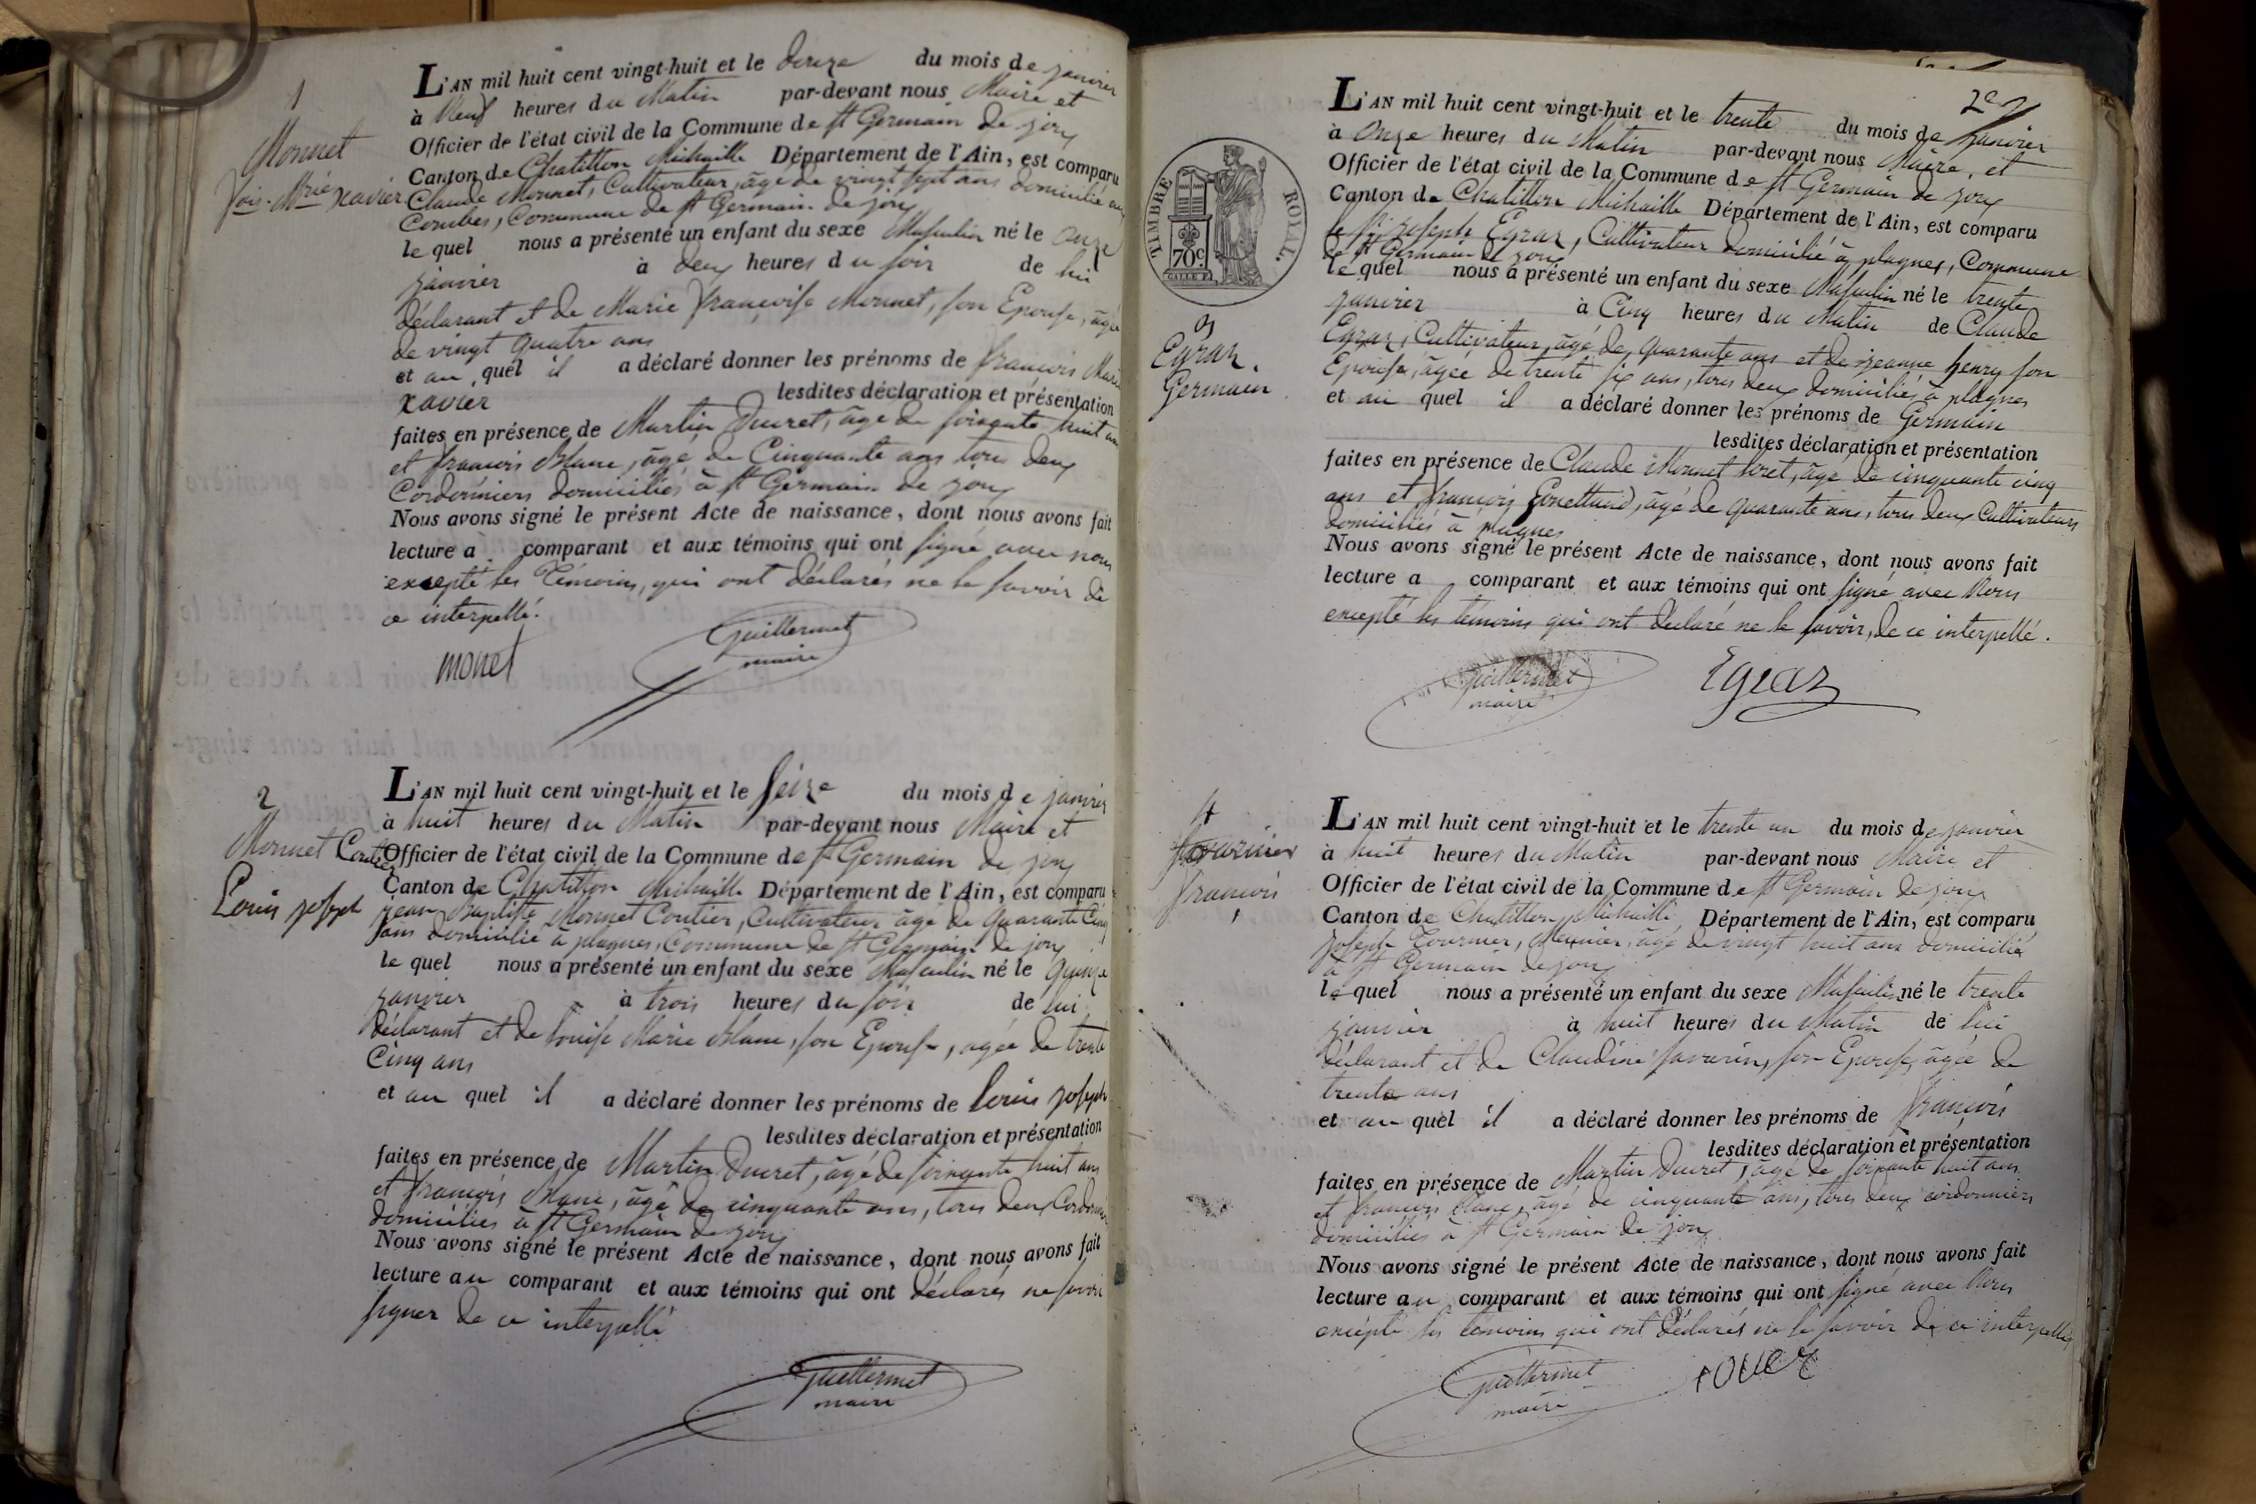 1
Monnet
fois. Mrie xavier
L'AN mil huit cent vingt-huit et le douze du mois de janvier
à Neuf heures du Matin par-devant nous Maire et
Officier de l'état civil de la Commune de st Germain de joux
Canton de Chatillon Michaille Département de l'Ain, est comparu
Claude Monnet, Cultivateur, âgé de vingt sept ans domicilié aux
Combes, Commune de st Germain de joux
le quel nous a présenté un enfant du sexe Masculin né le onze
janvier à deux heures du soir de lui
déclarant et de Marie françoise Monnet, son Epouse, âgée
de vingt quatre ans
et au quel il a déclaré donner les prénoms de françois Marie
xavier lesdites déclaration et présentation
faites en présence de Martin Ducret, âgé de soixante huit ans
et françois Blanc, âgé de Cinquante ans tous deux
Cordonniers domiciliés à st Germain de joux
Nous avons signé le présent Acte de naissance, dont nous avons fait
lecture a comparant et aux témoins qui ont signé avec nous
excepté les Témoins, qui ont déclarés ne le savoir de
ce interpellé.
monet
Guillermet
maire
2
Monnet Coutier
Louis joseph
L'AN mil huit cent vingt-huit et le seize du mois de janvier
à huit heures du Matin par-devant nous Maire et
Officier de l'état civil de la Commune de st Germain de joux
Canton de Chatillon Michaille Département de l'Ain, est comparu
jean Baptiste Monnet Coutier, Cultivateur âgé de quarante Cinq
ans domicilié à plagnes, Commune de st Germain de joux
le quel nous a présenté un enfant du sexe Masculin né le quinze
janvier à trois heures du soir de lui
déclarant et de Louise Marie Blanc, son Epouse, âgée de trente
Cinq ans
et au quel il a déclaré donner les prénoms de Louis joseph
lesdites déclaration et présentation
faites en présence de Martin Ducret, âgé de soixante huit ans
et françois Blanc, âgé de cinquante ans, tous deux Cordonniers
domiciliés à st Germain de joux
Nous avons signé le présent Acte de naissance, dont nous avons fait
lecture au comparant et aux témoins qui ont déclarés ne savoir
signer de ce interpellé
Guillermet
maire
2e
TIMBRE ROYAL.
70c
3
Egraz
Germain
L'AN mil huit cent vingt-huit et le trente du mois de Janvier
à onze heures du Matin par-devant nous Maire, et
Officier de l'état civil de la Commune de st Germain de joux
Canton de Chatillon Michaille Département de l'Ain, est comparu
le sr joseph Egraz, Cultivateur domicilié à plagnes, Commune
de st Germain de joux
le quel nous a présenté un enfant du sexe Masculin né le trente
janvier à Cinq heures du Matin de Claude
Egraz, Cultivateur, âgé de quarante ans et de jeanne henry son
Epouse, âgée de trente six ans, tous deux domiciliés à plagnes
et au quel il a déclaré donner les prénoms de Germain
lesdites déclaration et présentation
faites en présence de Claude Monnet, âgé de cinquante cinq
ans et françois, âgé de quarante ans, tous deux Cultivateurs
domiciliés à plagnes
Nous avons signé le présent Acte de naissance, dont nous avons fait
lecture a comparant et aux témoins qui ont signé avec Nous
excepté les témoins qui ont déclaré ne le savoir, de ce interpellé.
Guillermet
maire
Egraz
4
françois
L'AN mil huit cent vingt-huit et le trente un du mois de janvier
à huit heures du Matin par-devant nous Maire et
Officier de l'état civil de la Commune de st Germain de joux
Canton de Chatillon Michaille Département de l'Ain, est comparu
joseph Tournier, Meunier, âgé de vingt huit ans domicilié
à st Germain de joux
le quel nous a présenté un enfant du sexe Masculin né le trente
janvier à huit heures du Matin de lui
déclarant et de Claudine Savarin, son Epouse, âgée de
trente ans
et au quel il a déclaré donner les prénoms de françois
lesdites déclaration et présentation
faites en présence de Martin Ducret, âgé de soixante huit ans
et françois Blanc, âgé de cinquante ans, tous deux cordonniers
domiciliés à st Germain de joux
Nous avons signé le présent Acte de naissance, dont nous avons fait
lecture au comparant et aux témoins qui ont signé avec Nous
excépté les témoins qui ont déclarés ne le savoir de ce interpellés
Guillermet
maire